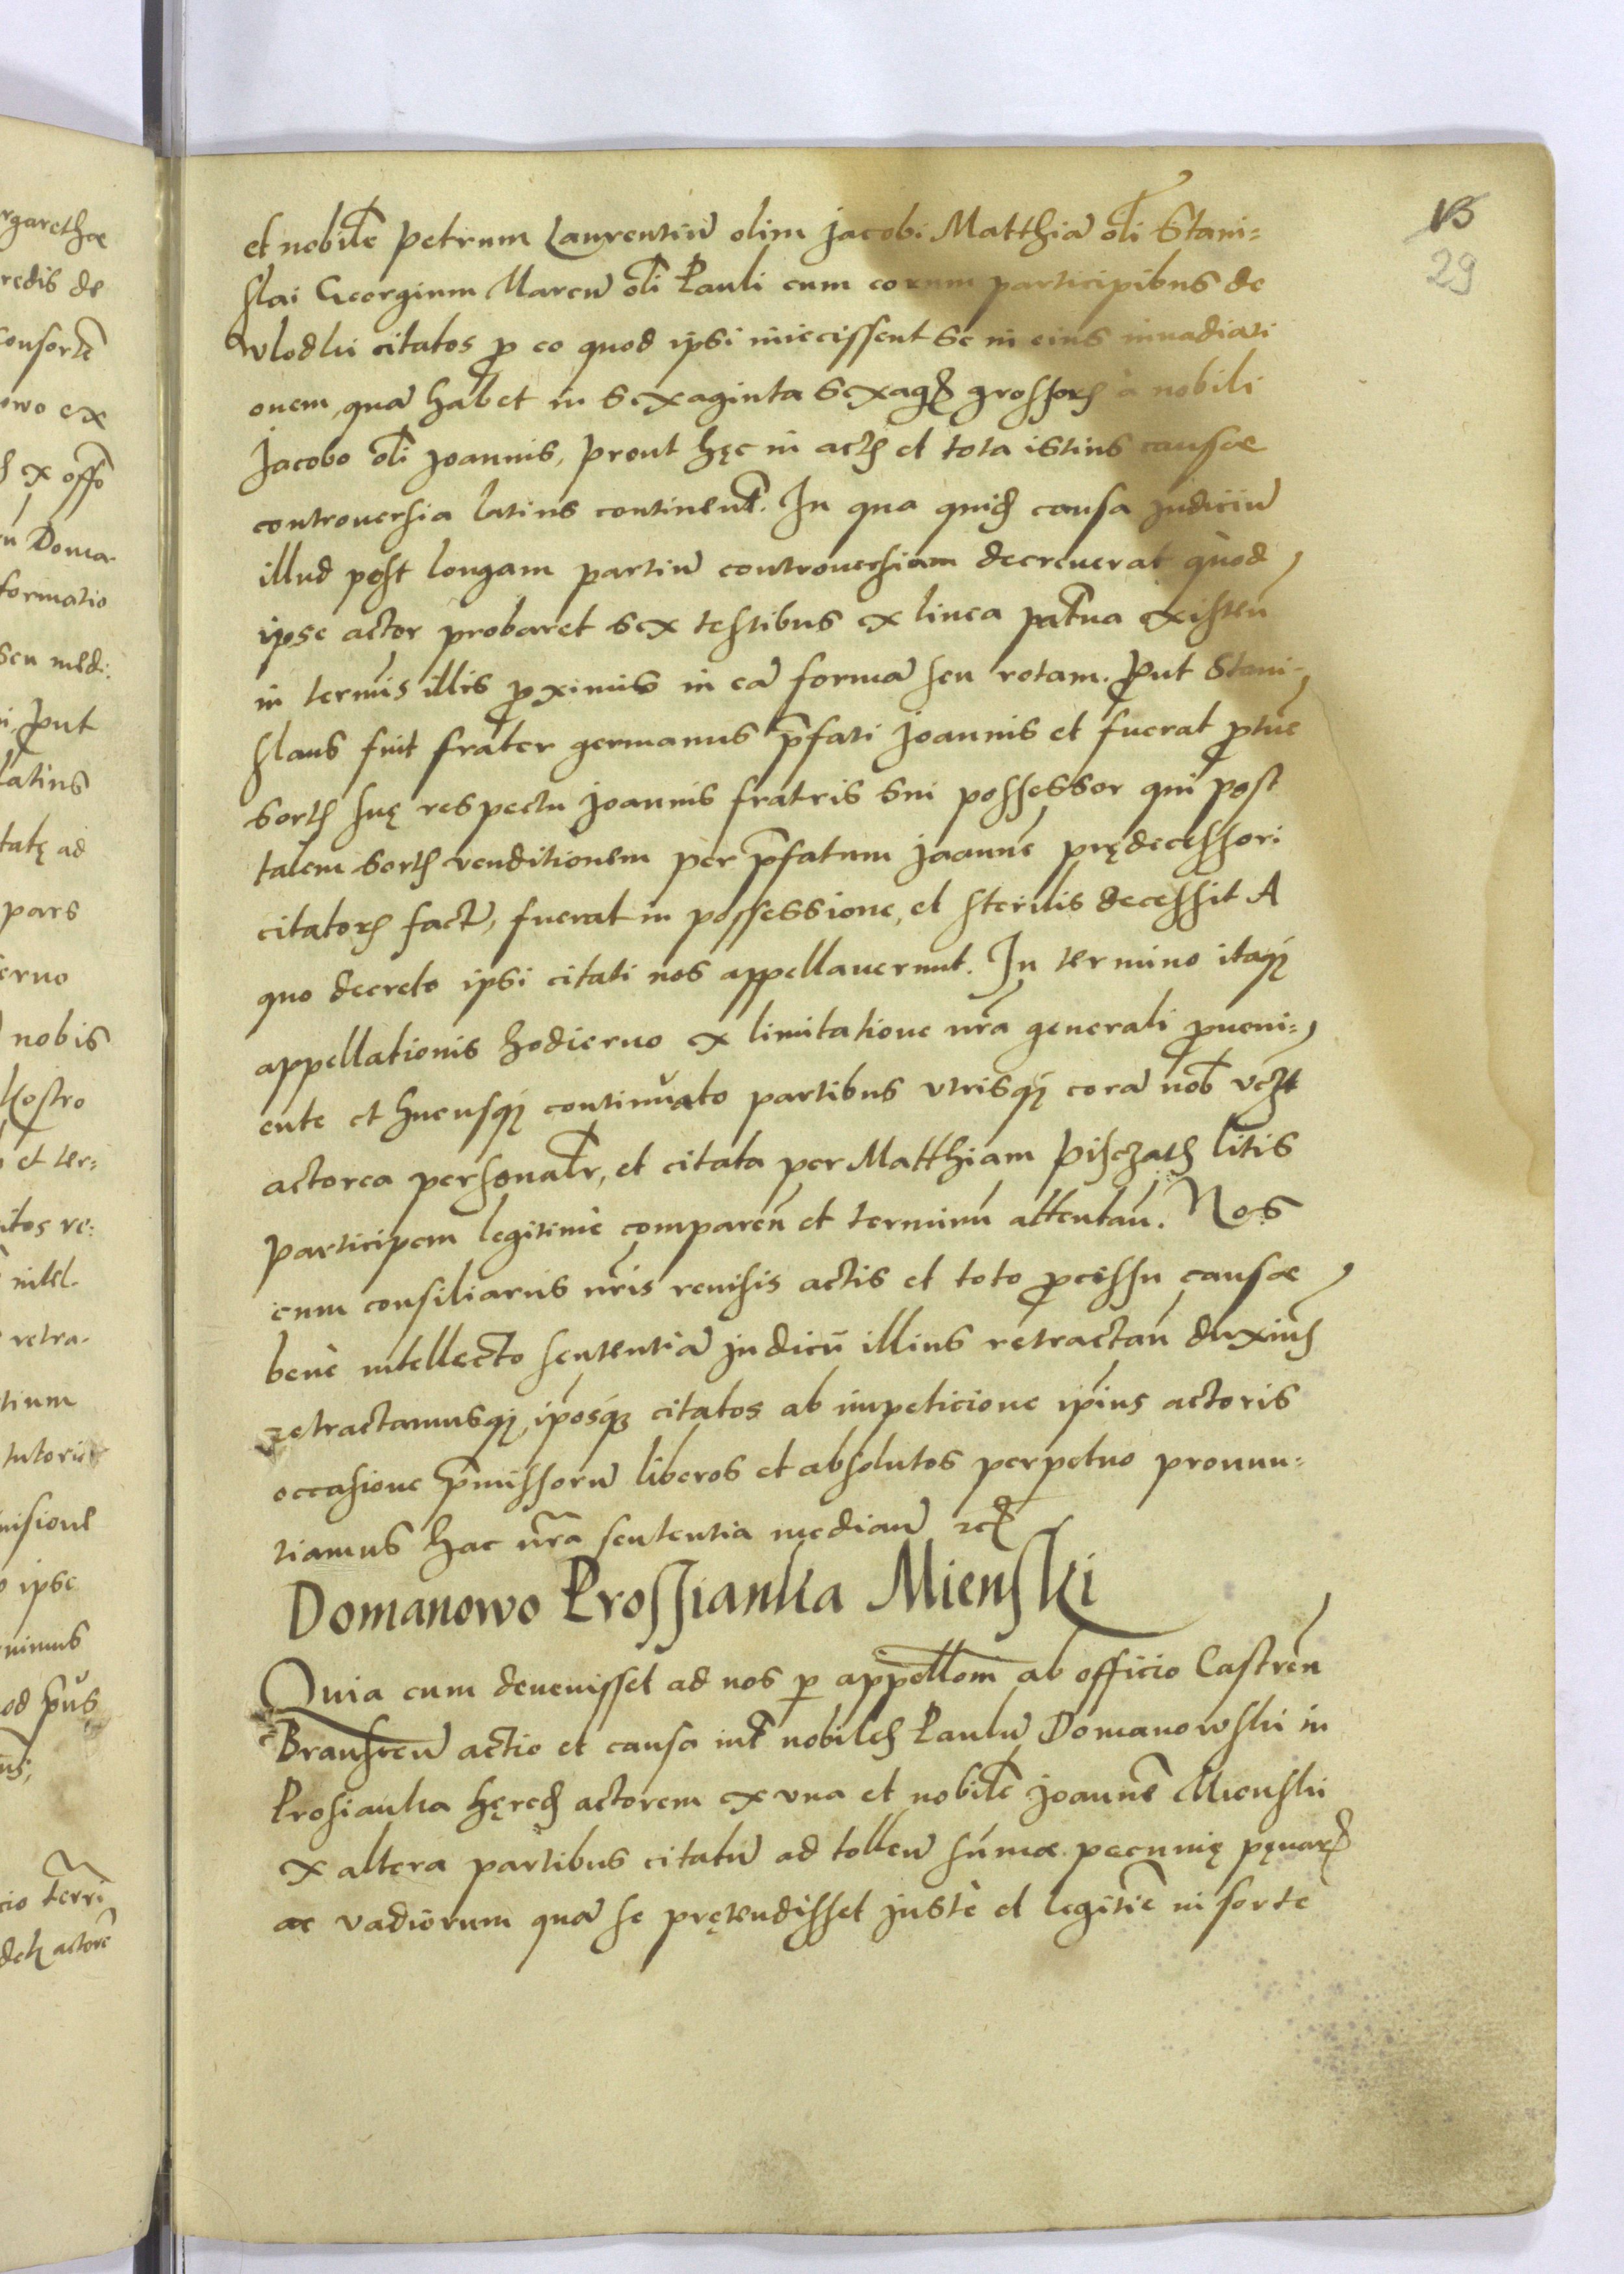 13
29
et nobile͂ Petrum Laurentiu͂ olim Jacobi Matthia͂ oli͂ Stani=
slai Georgium Marcu͂ oli͂ Pauli cum eorum participibus de
Wlodki citatos ꝓ eo quod ipsi iniecissent se in eius inuadiati
onem, qua͂ habet in sexaginta sexagꝭ grossorꝭ à nobili
Jacobo oli͂ Joannis, prout hęc in actꝭ et tota istius causæ
controuersia latius continent͂. In qua quidꝭ causa judiciu͂
illud post longam partiu͂ controuersiam decreuerat quòd
ipse actor probaret sex testibus ex linea pat͂na existen͂
in termi͂s illis ꝓximis in ea͂ forma͂ seu rotam. Ꝓut Stani-
slaus fuit frater germanus p͂fati Joannis et fuerat ꝓtu͂c
sortꝭ suę respectu Joannis fratris sui possessor qui post
talem sortꝭ venditionem per p͂fatum Joanne͂ prędecessori
citatorꝭ factu͂, fuerat in possessione, et sterilis decessit A
quo decreto ipsi citati nos appellauerunt. In termino itaqꝫ
appellationis hodierno ex limitatione nr͂a generali ꝓueni=
ente et hucusqꝫ continuato partibus vtrisqꝫ cora͂ nob͂ vcꝫt
actorea personalr͂, et citata per Matthiam Pisczatꝭ litis
participem legitime comparen͂ et terminu͂ attentan͂. Nos
cum consiliariis nr͂is reuisis actis et toto ꝓcessu causæ
benè intellecto sententia͂ judicii illius retractan͂ duximꝰ
retractamusqꝫ, ip͂osqꝫ citatos ab impeticione ip͂ius actoris
occasione p͂missoru͂ liberos et absolutos perpetuo pronun=
tiamus hac nr͂a sententia median͂ ꝛcꝭ
Domanowo Prossianka Mienski
Quia cum deuenisset ad nos ꝑ appellom͂ ab officio Castren͂
Branscen͂ actio et causa int͂ nobilesꝭ Paulu͂ Domanowski in
Prosianka hęredꝭ actorem ex vna et nobile͂ Joanne͂ Mienski
ex altera partibus citatu͂ ad tollen͂ sum͂æ pecunię pęnarꝭ
ac vadiorum qua͂ se prętendisset justè et legitie͂ in sorte